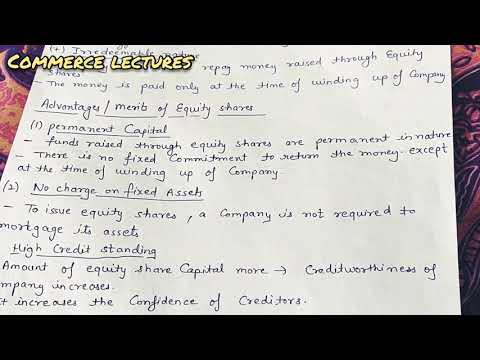 COMMERCE LECTURES
(+) Irredeemable nature
repay money raised through Equity
shares
- The money is paid only at the time of winding up of Company
Advantages/merits of Equity shares
(1) permanent Capital
- funds raised through equity shares are permanent in nature
- There is no fixed Commitment to return the money except
at the time of winding up of Company.
(2) No charge on fixed Assets
- To issue equity shares, a Company is not required to
mortgage its assets
High Credit standing
Amount of equity share Capital more → Creditworthiness of
mpany increases.
t increases the Confidence of Creditors.